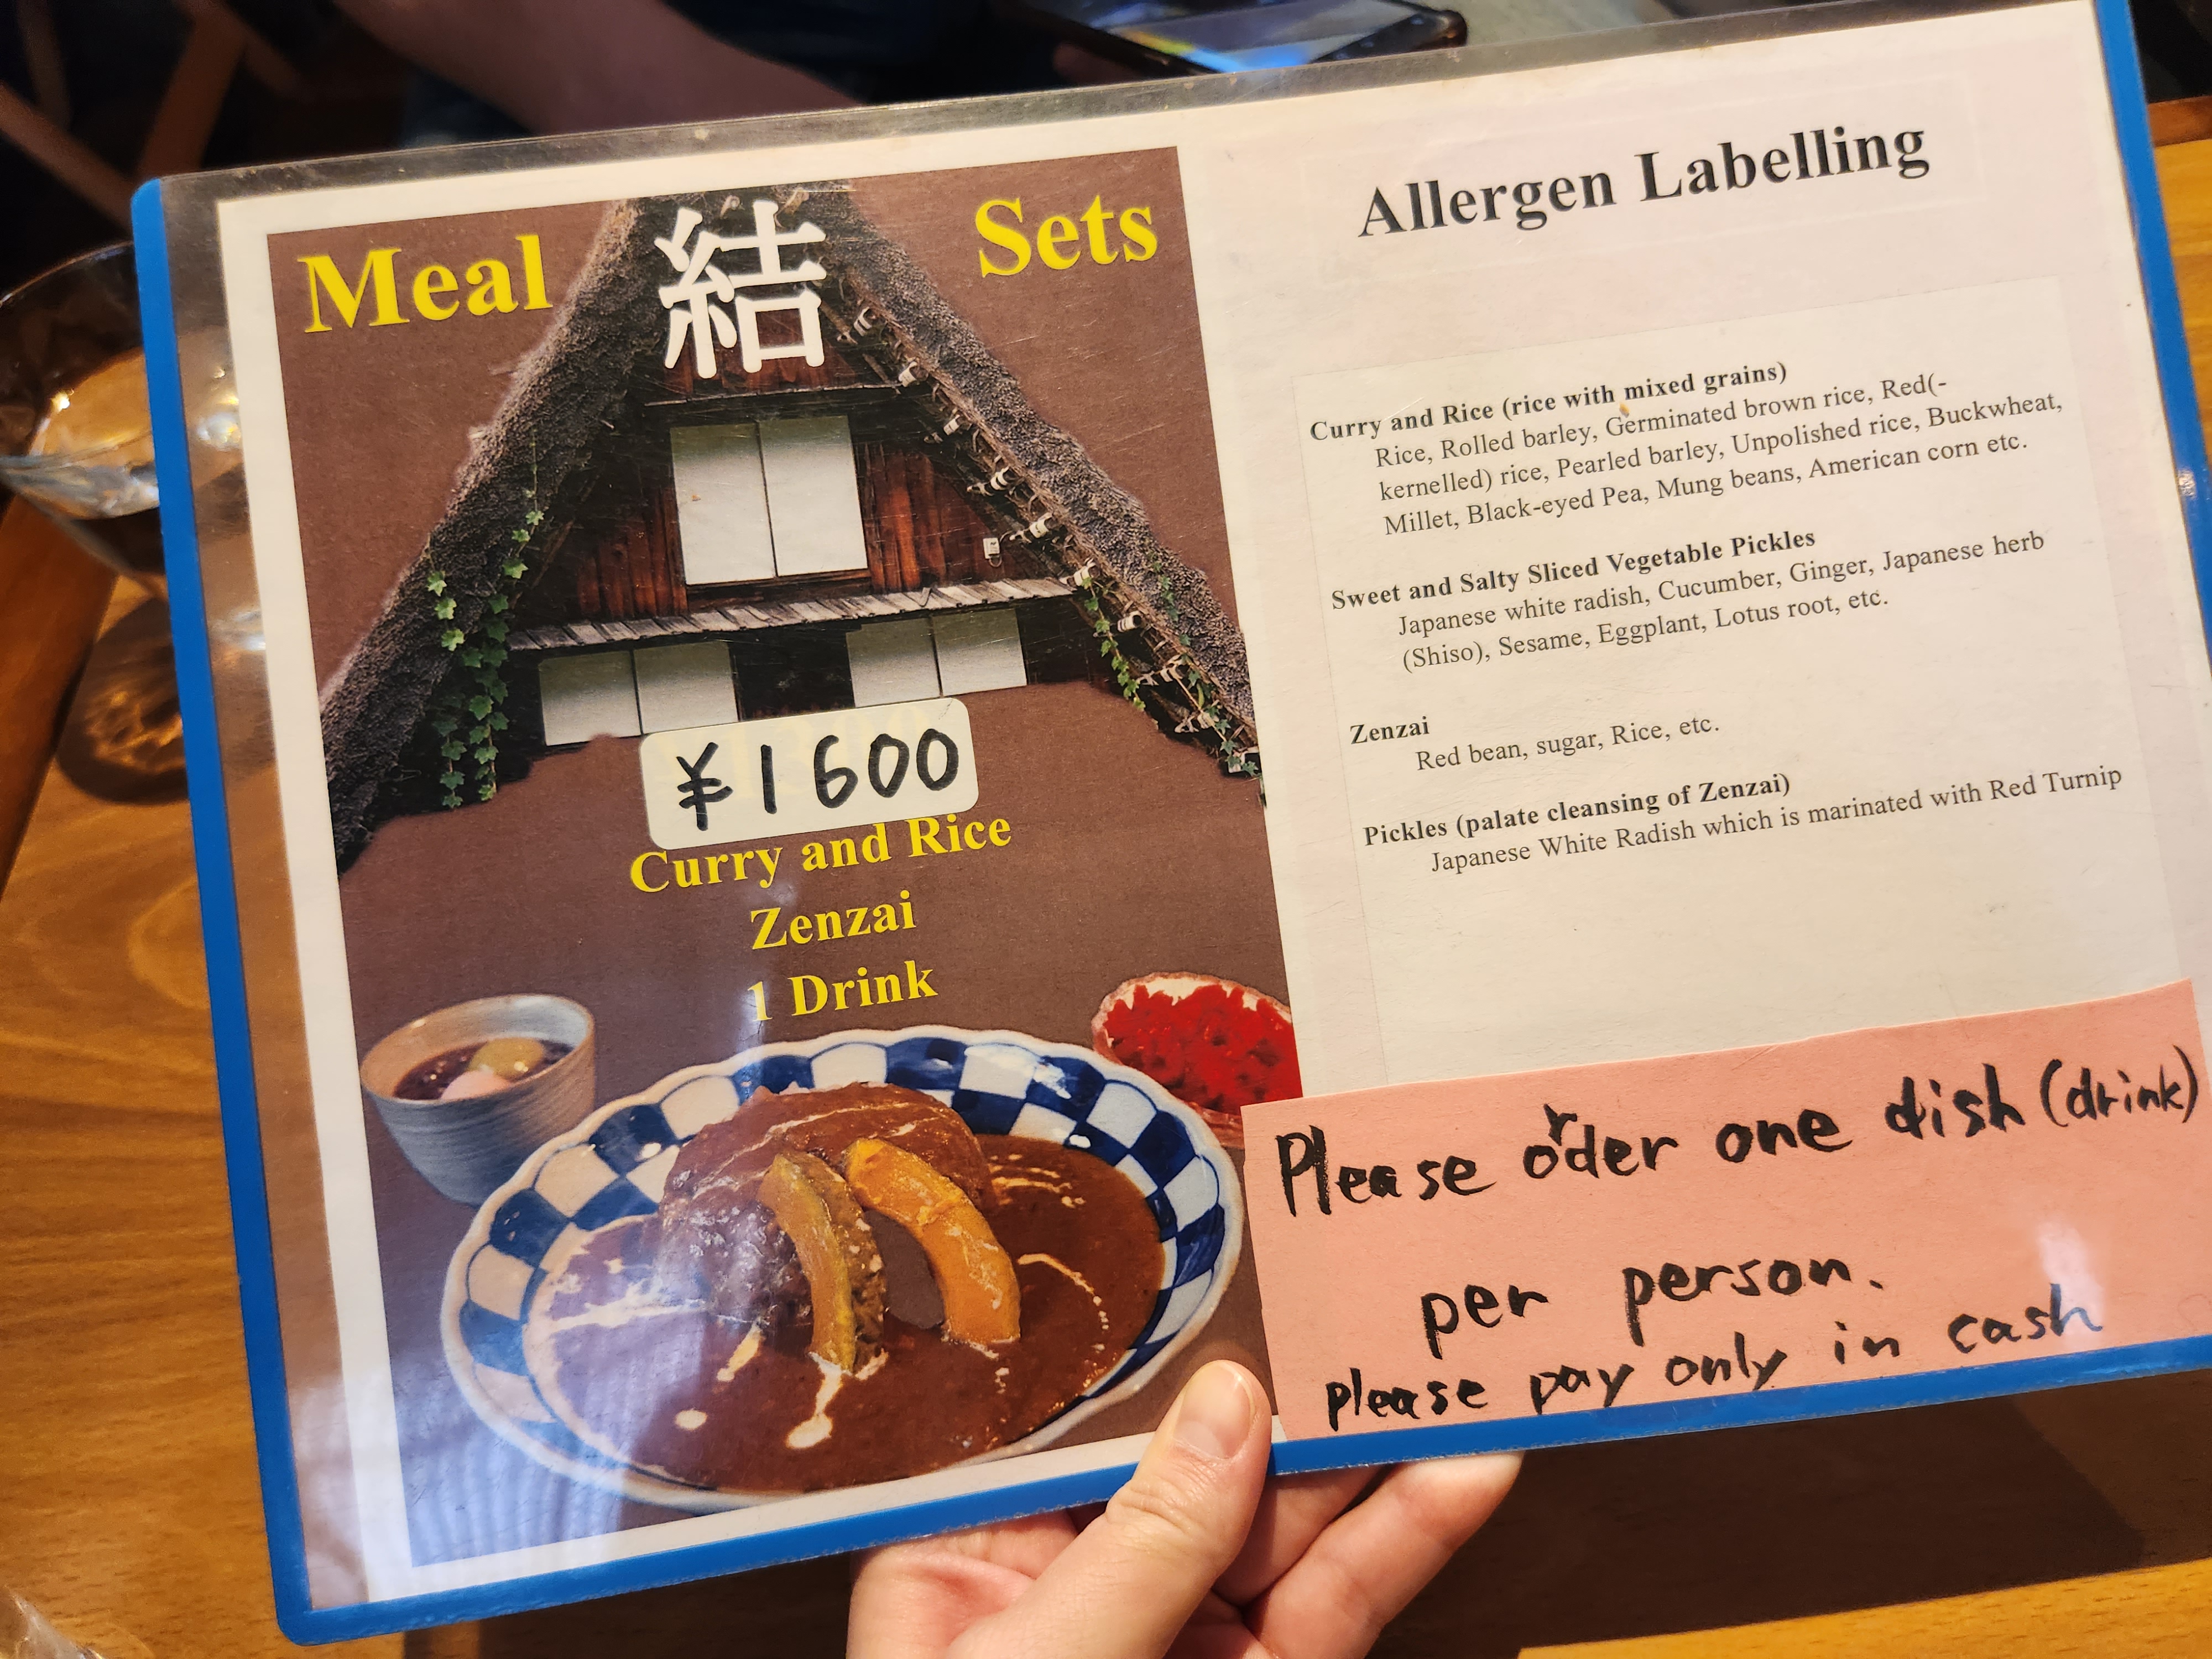 Meal 結 Sets
¥1600
Curry and Rice
Zenzai
1 Drink
Allergen Labelling
Curry and Rice (rice with mixed grains)
Rice, Rolled barley, Germinated brown rice, Red(-
kernelled) rice, Pearled barley, Unpolished rice, Buckwheat,
Millet, Black-eyed Pea, Mung beans, American corn etc.
Sweet and Salty Sliced Vegetable Pickles
Japanese white radish, Cucumber, Ginger, Japanese herb
(Shiso), Sesame, Eggplant, Lotus root, etc.
Zenzai
Red bean, sugar, Rice, etc.
Pickles (palate cleansing of Zenzai)
Japanese White Radish which is marinated with Red Turnip
Please order one dish (drink)
per person.
please pay only in cash